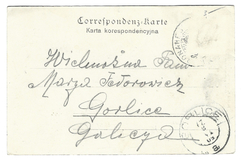 Correspondenz-Karte
Karta korespondencyjna
Wielmożna Pani
Marya Fedorowicz
Gorlice
Galicya
GORLICE